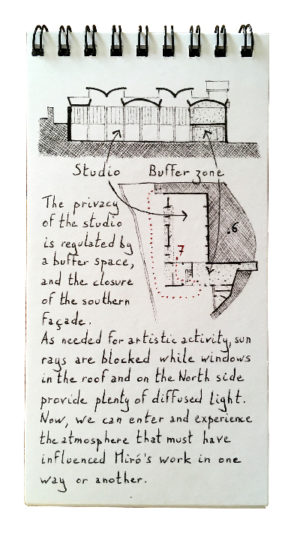 Studio Buffer zone
.6
7
The privacy
of the studio
is regulated by
a buffer space,
and the closure
of the southern
façade.
As needed for artistic activity, sun
rays are blocked while windows
in the roof and on the North side
provide plenty of diffused light.
Now, we can enter and experience
the atmosphere that must have
influenced Miró's work in one
way or another.